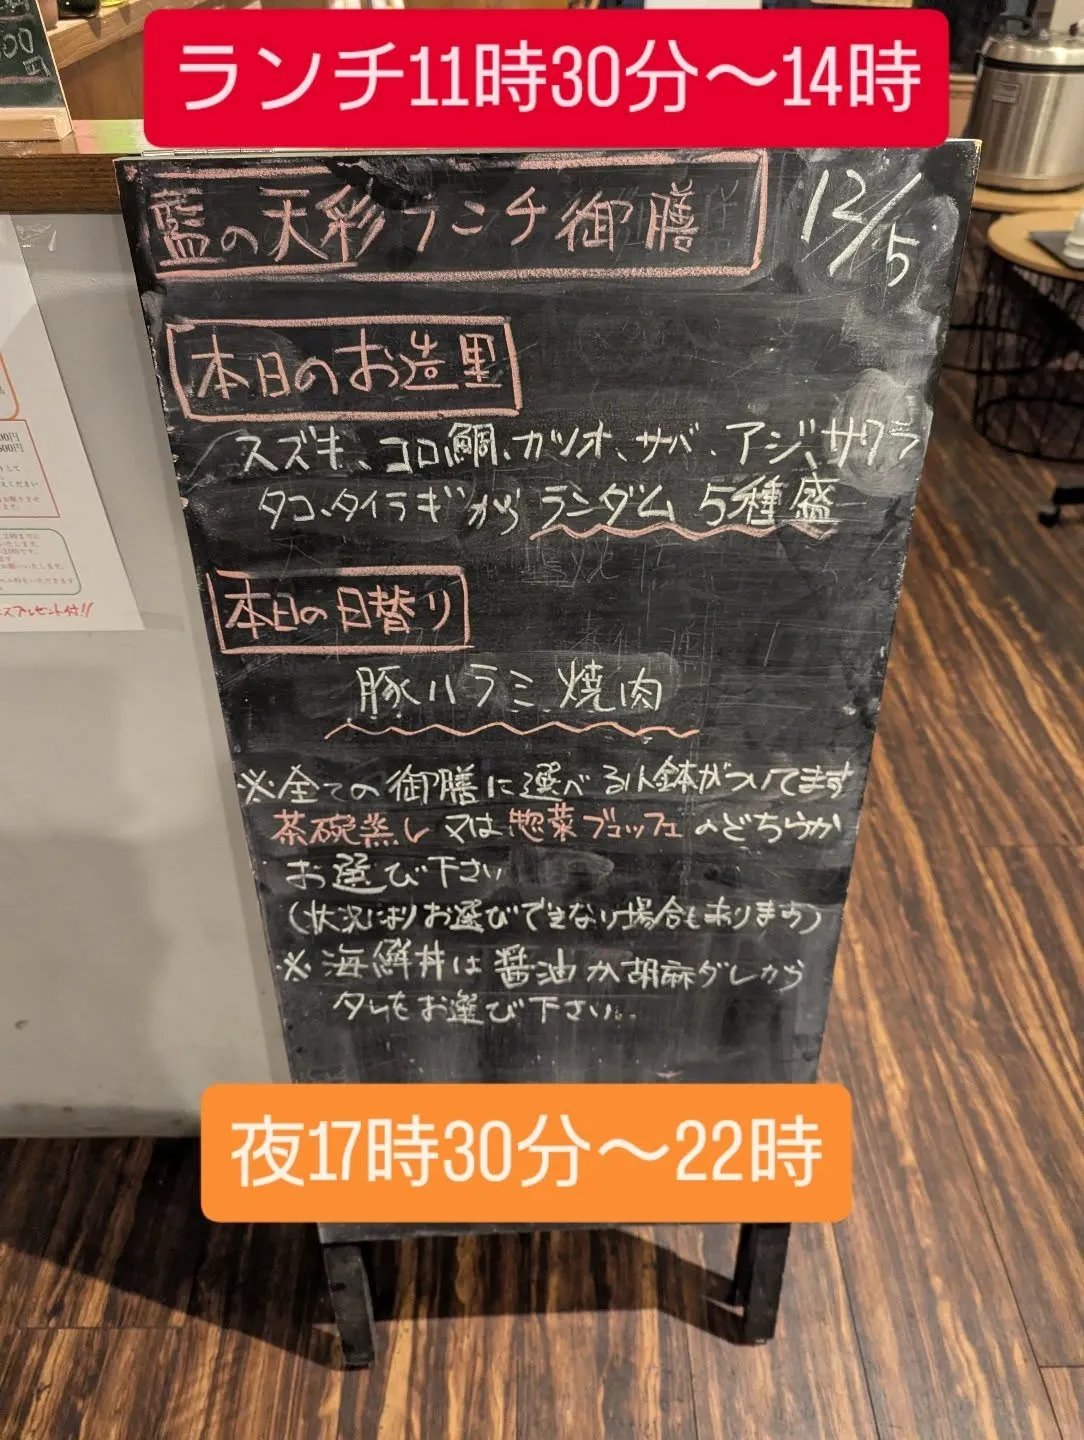 ランチ11時30分〜14時
藍の天彩ランチ御膳
12/5
本日のお造里
スズキ、コロ鯛、カツオ、サバ、アジ、サワラ
タコ、タイラギから ランダム 5種盛
本日の日替り
豚ハラミ焼肉
※全ての御膳に選べる小鉢がついてます
茶碗蒸し 又は 惣菜ブュッフェ のどちらか
お選び下さい
(状況によりお選びできない場合もあります)
※海鮮丼は醤油か胡麻ダレから
タレをお選び下さい。
夜17時30分〜22時